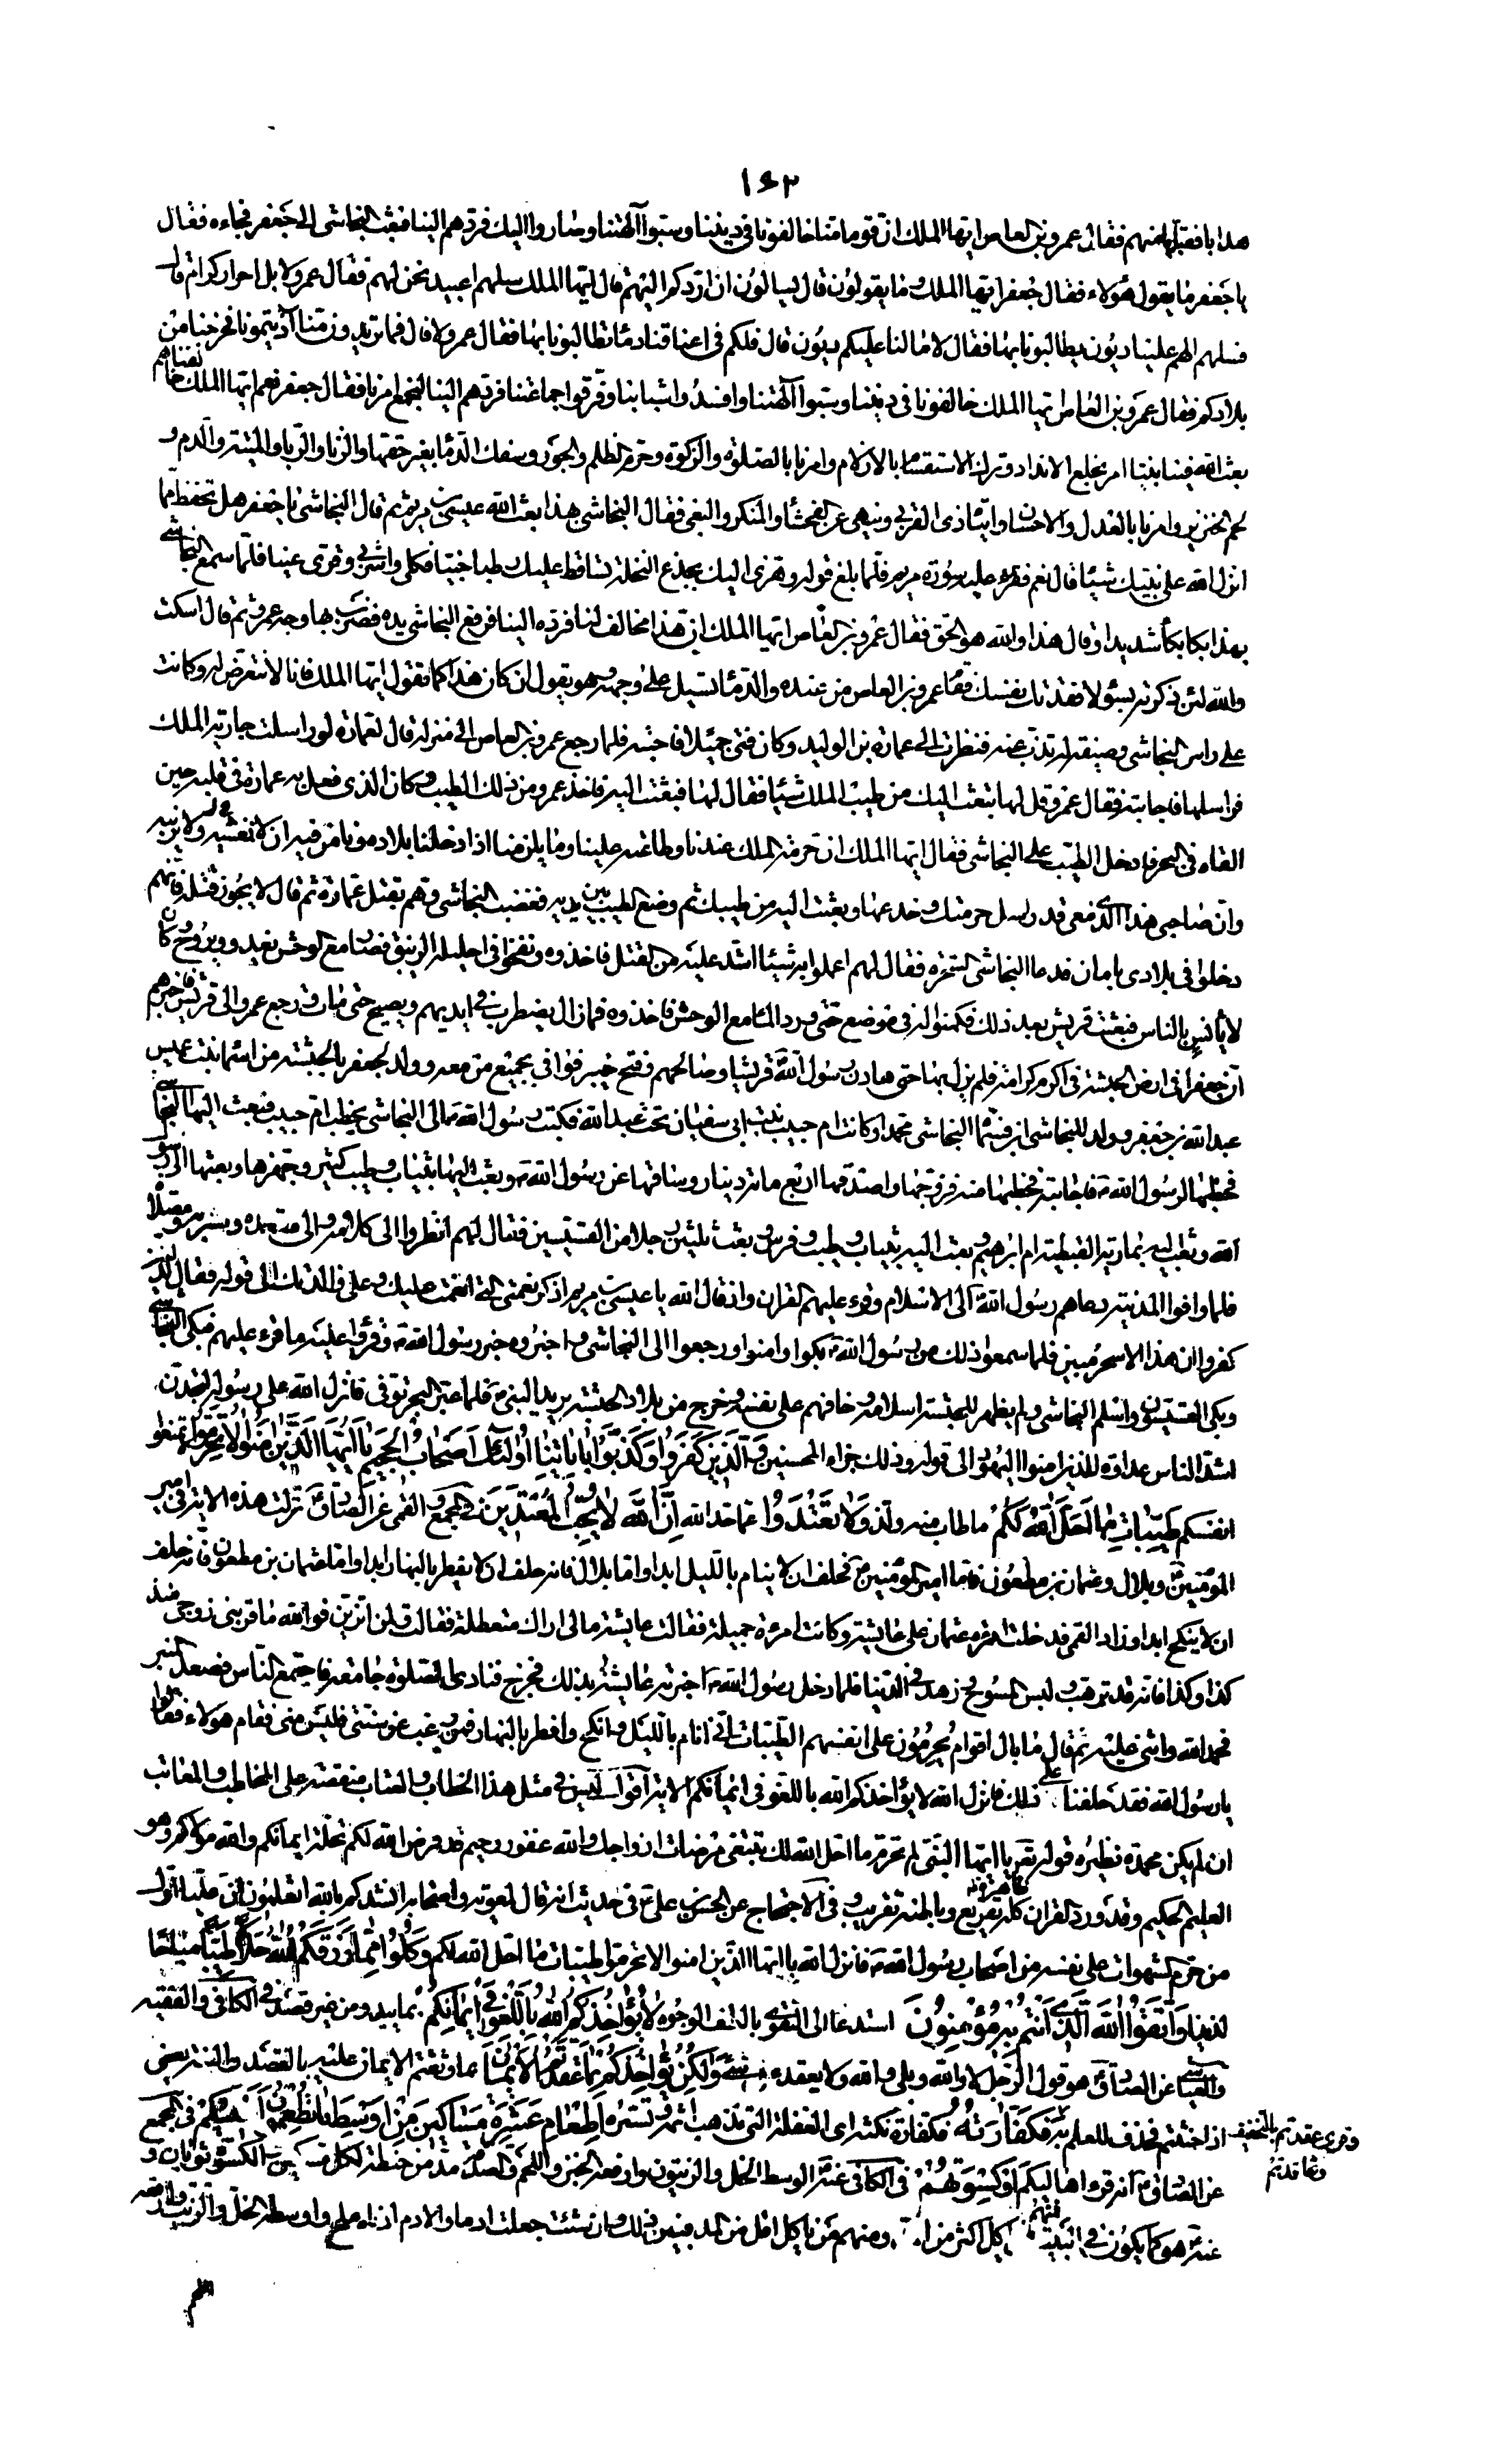 ١٤٣
هدايا فقبلها منهم فقال عمرو بن العاص ايها الملك ان قوما منا خالفونا في ديننا وسبوا آلهتنا وصاروا اليك فردهم الينا فبعث النجاشي الى جعفر فجاءه فقال
يا جعفر ما يقول هؤلاء فقال جعفر ايها الملك وما يقولون قال يسالون ان اردكم اليهم قال ايها الملك سلهم اعبيد نحن لهم فقال عمرو لا بل احرار كرام قال
فسلهم الهم علينا ديون يطالبونا بها فقال لا ما لنا عليكم ديون قال فلكم في اعناقنا دماء تطالبونا بها فقال عمرو لا قال فما تريدون منا آذيتمونا فخرجنا من
بلادكم فقال عمرو بن العاص ايها الملك خالفونا في ديننا وسبوا آلهتنا وافسدوا شبابنا وفرقوا جماعتنا فردهم الينا ليجمع امرنا فقال جعفر نعم ايها الملك خالفناهم
بعث الله فينا نبيا امر بخلع الانداد وترك الاستقسام بالازلام وامرنا بالصلوة والزكوة وحرم الظلم والجور وسفك الدماء بغير حقها والزنا والربا والميتة والدم و
لحم الخنزير وامرنا بالعدل والاحسان وايتاء ذي القربى وينهى عن الفحشاء والمنكر والبغي فقال النجاشي بهذا بعث الله عيسى بن مريم ثم قال النجاشي يا جعفر هل تحفظ مما
انزل الله على نبيك شيئا قال نعم فقرء عليه سورة مريم فلما بلغ قوله وهزي اليك بجذع النخلة تساقط عليك رطبا جنيا فكلي واشربي وقري عينا فلما سمع النجاشي
بهذا بكا بكاء شديدا وقال هذا والله هو الحق فقال عمرو بن العاص ايها الملك ان هذا مخالف لنا فرده الينا فرفع النجاشي يده فضرب بها وجه عمرو ثم قال اسكت
والله لئن ذكرته بسوء لافقدنك نفسك فقام عمرو بن العاص من عنده والدماء تسيل على وجهه وهو يقول ان كان هذا كما تقول ايها الملك فانا لا نتعرض له وكانت
على راس النجاشي وصيفة له تذب عنه فنظرت الى عمارة بن الوليد وكان فتى جميلا فاحبته فلما رجع عمرو بن العاص الى منزله قال لعمارة لو راسلت جارية الملك
فراسلها فاجابته فقال عمرو قل لها تبعث اليك من طيب الملك شيئا فقال لها فبعثت اليه فاخذ عمرو من ذلك الطيب وكان الذي فعل به عمارة في قلبه حين
القاه في البحر فادخل الطيب على النجاشي فقال ايها الملك ان حرمة الملك عندنا وطاعته علينا وما يلزمنا اذا دخلنا بلاده ونامن فيه ان لا نغشه ولا نريبه
وان صاحبي هذا الذي معي قد راسل حرمتك وخدعها وبعثت اليه من طيبك ثم وضع الطيب بين يديه فغضب النجاشي وهم بقتل عمارة ثم قال لا يجوز قتله فانهم
دخلوا في بلادي بامان فدعا النجاشي السحرة فقال لهم اعملوا به شيئا اشد عليه من القتل فاخذوه ونفخوا في احليله الزيبق فصار مع الوحش يغدو ويروح وكان
لا يانس بالناس فبعثت قريش بعد ذلك فكمنوا له في موضع حتى ورد الماء مع الوحش فاخذوه فما زال يضطرب في ايديهم ويصيح حتى مات ورجع عمرو الى قريش فاخبرهم
ان جعفرا في ارض الحبشة في اكرم كرامة فلم يزل بها حتى هادن رسول الله قريشا وصالحهم وفتح خيبر فوافى بجميع من معه وولد لجعفر بالحبشة من اسماء بنت عميس
عبد الله بن جعفر وولد للنجاشي ابن فسماه النجاشي محمدا وكانت ام حبيب بنت ابي سفيان تحت عبد الله فكتب رسول الله الى النجاشي يخطب ام حبيب فبعث اليها النجاشي
فخطبها لرسول الله فاجابته فخطبها منه فزوجها واصدقها اربع مائة دينار وساقها عن رسول الله وبعث اليها بثياب وطيب كثير وجهزها وبعثها الى رسول
الله وبعث اليه بمارية القبطية ام ابرهيم وبعث اليه بثياب وطيب وفرس وبعث ثلثين رجلا من القسيسين فقال لهم انظروا الى كلامه والى مقعده ومشربه ومصلاه
فلما وافوا المدينة دعاهم رسول الله الى الاسلام وقرء عليهم القران واذ قال الله يا عيسى بن مريم اذكر نعمتي التي انعمت عليك وعلى والدتك الى قوله فقال الذين
كفروا ان هذا الا سحر مبين فلما سمعوا ذلك من رسول الله بكوا وامنوا ورجعوا الى النجاشي واخبروه خبر رسول الله وقرؤا عليه ما قرء عليهم فبكى النجاشي
وبكى القسيسون واسلم النجاشي ولم يظهر للحبشة اسلامه وخافهم على نفسه وخرج من بلاد الحبشة يريد النبي فلما عبر البحر توفي فانزل الله على رسوله لتجدن
اشد الناس عداوة للذين امنوا اليهود الى قوله وذلك جزاء المحسنين وَالَّذِينَ كَفَرُوا وَكَذَّبُوا بِآيَاتِنَا أُولَئِكَ أَصْحَابُ الْجَحِيمِ يَا أَيُّهَا الَّذِينَ آمَنُوا لَا تُحَرِّمُوا لا تمنعوا
انفسكم طَيِّبَاتِ مَا أَحَلَّ اللَّهُ لَكُمْ ما طاب منه ولذ وَلَا تَعْتَدُوا عما حد الله إِنَّ اللَّهَ لَا يُحِبُّ الْمُعْتَدِينَ في المجمع والقمي عن الصادق نزلت هذه الاية في امير
المؤمنين وبلال وعثمان بن مظعون فاما امير المؤمنين فحلف ان لا ينام بالليل ابدا واما بلال فانه حلف ان لا يفطر بالنهار ابدا واما عثمان بن مظعون فانه حلف
ان لا ينكح ابدا وزاد القمي فدخلت امرءة عثمان على عايشة وكانت امرءة جميلة فقالت عايشة ما لي اراك متعطلة فقالت ولمن اتزين فوالله ما قربني زوجي منذ
كذا وكذا فانه قد ترهب ولبس المسوح وزهد في الدنيا فلما دخل رسول الله اخبرته عايشة بذلك فخرج فنادى الصلوة جامعة فاجتمع الناس فصعد المنبر
فحمد الله واثنى عليه ثم قال ما بال اقوام يحرمون على انفسهم الطيبات اني انام بالليل وانكح وافطر بالنهار فمن رغب عن سنتي فليس مني فقام هؤلاء فقالوا
يا رسول الله فقد حلفنا على ذلك فانزل الله لا يؤاخذكم الله باللغو في ايمانكم الاية اقول ليس في مثل هذا الخطاب والعتاب منقصة على المخاطب والمعاتب
ان لم يكن محمدة نظيره قوله تعالى يا ايها النبي لم تحرم ما احل الله لك تبتغي مرضات ازواجك والله غفور رحيم قد فرض الله لكم تحلة ايمانكم والله موليكم وهو
العليم الحكيم وقد ورد القران كله ظاهره تقريع وباطنه تقريب وفي الاحتجاج عن الحسن بن علي في حديث انه قال لمعوية واصحابه انشدكم بالله اتعلمون ان عليا اول
من حرم الشهوات على نفسه من اصحاب رسول الله فانزل الله يا ايها الذين امنوا لا تحرموا طيبات ما احل الله لكم وَكُلُوا مِمَّا رَزَقَكُمُ اللَّهُ حَلَالًا طَيِّبًا مباحا
لذيذا وَاتَّقُوا اللَّهَ الَّذِي أَنْتُمْ بِهِ مُؤْمِنُونَ استدعاء الى التقوى بالطف الوجوه لَا يُؤَاخِذُكُمُ اللَّهُ بِاللَّغْوِ فِي أَيْمَانِكُمْ بما يبدو من غير قصد في الكافي والفقيه
والعياشي عن الصادق هو قول الرجل لا والله وبلى والله ولا يعقد على شيء وَلَكِنْ يُؤَاخِذُكُمْ بِمَا عَقَّدْتُمُ الْأَيْمَانَ بما وثقتم الايمان عليه بالقصد والنية يعني
اذا حنثتم فحذف للعلم به فَكَفَّارَتُهُ فكفارة نكثه اي الفعلة التي تذهب اثمه وتستره إِطْعَامُ عَشَرَةِ مَسَاكِينَ مِنْ أَوْسَطِ مَا تُطْعِمُونَ أَهْلِيكُمْ في المجمع
وقرئ عقدتم بالتخفيف وعاقدتم
عن الصادق انه قرء اهاليكم أَوْ كِسْوَتُهُمْ في الكافي عنه الوسط الخل والزيتون وارفعه الخبز واللحم والصدقة مد من حنطة لكل مسكين والكسوة ثوبان و
عنه هو كما يكون في البيت منهم ياكل اكثر من المد ومنهم من ياكل اقل من المد فبين ذلك وان شئت جعلت لهم ادما والادم ادناه ملح واوسطه الخل والزيت وارفعه
اللحم